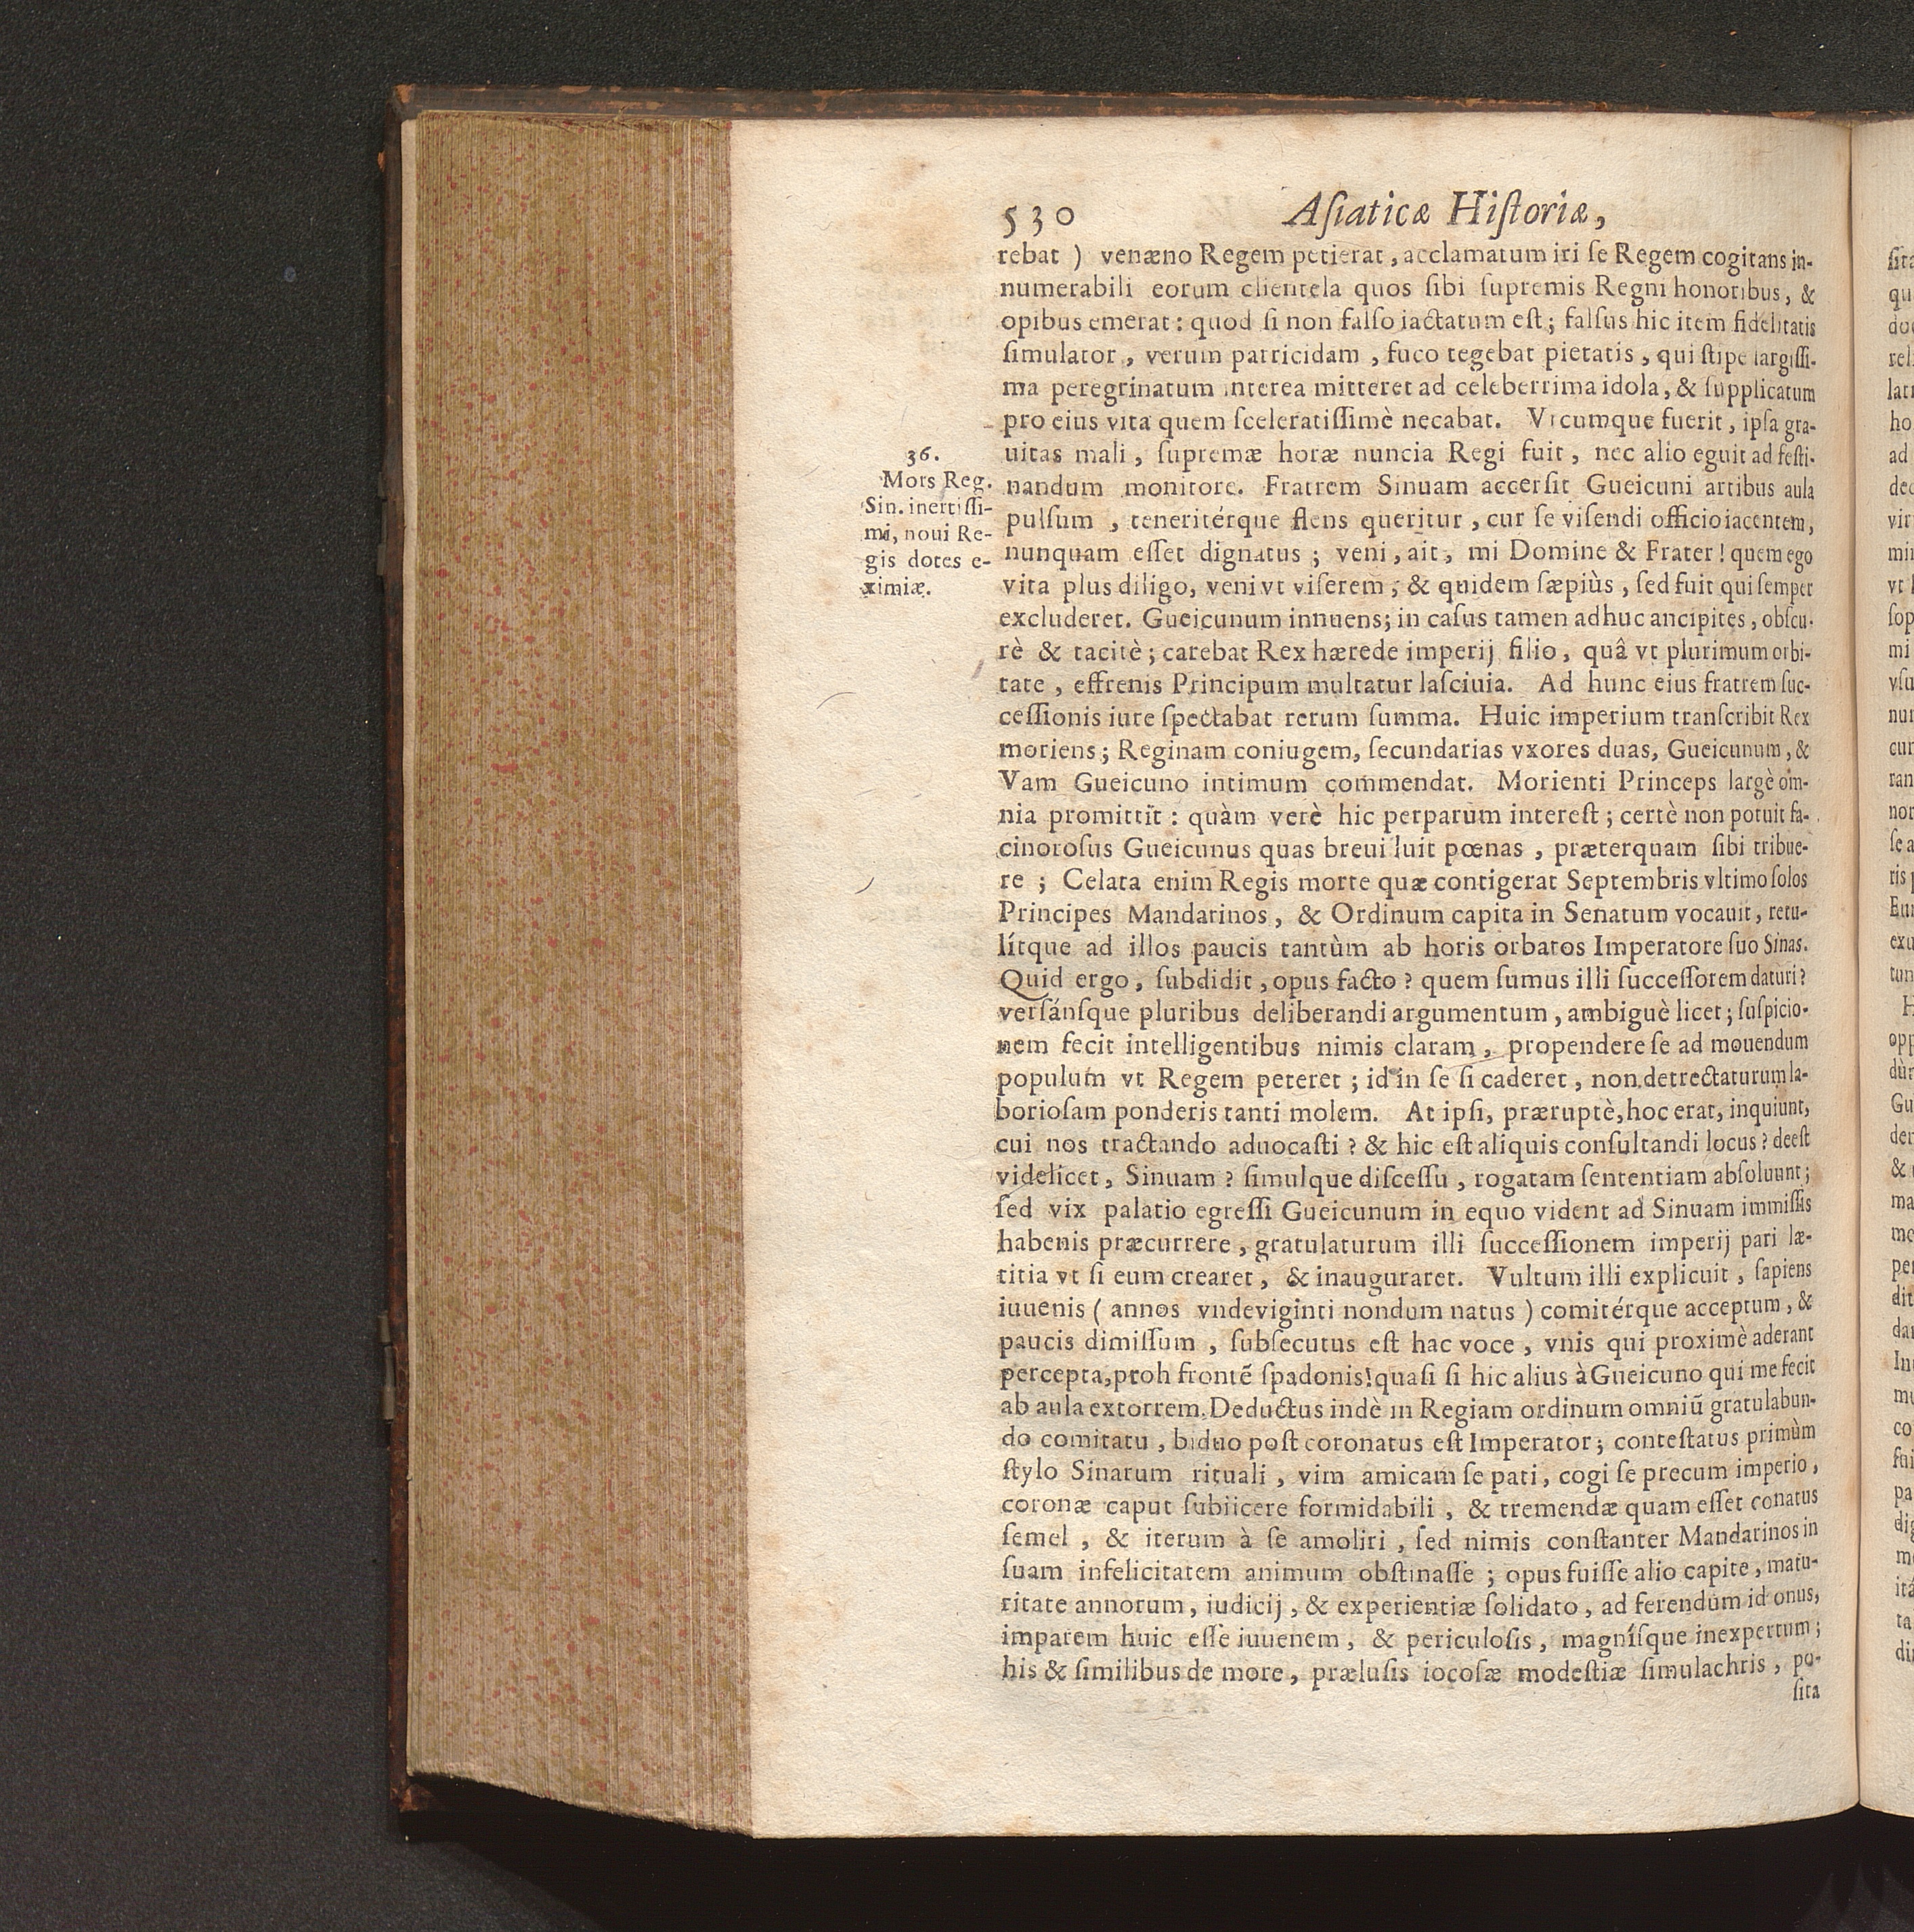 530 Asiaticæ Historiæ,
rebat ) venæno Regem petierat, acclamatum iri se Regem cogitans in-
numerabili eorum clientela quos sibi supremis Regni honoribus, &
opibus emerat: quod si non falso iactatum est; falsus hic item fidelitatis
simulator, verum patricidam, fuco tegebat pietatis, qui stipe largissi-
ma peregrinatum interea mitteret ad celeberrima idola, & supplicatum
pro eius vita quem sceleratissimè necabat. Vtcumque fuerit, ipsa gra-
uitas mali, supremæ horæ nuncia Regi fuit, nec alio eguit ad festi-
nandum monitore. Fratrem Sinuam accersit Gueicuni artibus aula
pulsum, teneritérque flens queritur, cur se visendi officio iacentem,
nunquam esset dignatus; veni, ait, mi Domine & Frater! quem ego
vita plus diligo, veni vt viserem; & quidem sæpiùs, sed fuit qui semper
excluderet. Gueicunum innuens; in casus tamen adhuc ancipites, obscu-
rè & tacitè; carebat Rex hærede imperij filio, quâ vt plurimum orbi-
tate, effrenis Principum multatur lasciuia. Ad hunc eius fratrem suc-
cessionis iure spectabat rerum summa. Huic imperium transcribit Rex
moriens; Reginam coniugem, secundarias vxores duas, Gueicunum, &
Vam Gueicuno intimum commendat. Morienti Princeps largè om-
nia promittit: quàm verè hic perparum interest; certè non potuit fa-
cinorosus Gueicunus quas breui luit pœnas, præterquam sibi tribue-
re; Celata enim Regis morte quæ contigerat Septembris vltimo solos
Principes Mandarinos, & Ordinum capita in Senatum vocauit, retu-
lítque ad illos paucis tantùm ab horis orbatos Imperatore suo Sinas.
Quid ergo, subdidit, opus facto? quem sumus illi successorem daturi?
versánsque pluribus deliberandi argumentum, ambiguè licet; suspicio-
nem fecit intelligentibus nimis claram, propendere se ad mouendum
populum vt Regem peteret; id in se si caderet, non detrectaturum la-
boriosam ponderis tanti molem. At ipsi, præruptè, hoc erat, inquiunt,
cui nos tractando aduocasti? & hic est aliquis consultandi locus? deest
videlicet, Sinuam? simulque discessu, rogatam sententiam absoluunt;
sed vix palatio egressi Gueicunum in equo vident ad Sinuam immissis
habenis præcurrere, gratulaturum illi successionem imperij pari læ-
titia vt si eum crearet, & inauguraret. Vultum illi explicuit, sapiens
iuuenis ( annos vndeviginti nondum natus ) comitérque acceptum, &
paucis dimissum, subsecutus est hac voce, vnis qui proximè aderant
percepta, proh frontẽ spadonis! quasi si hic alius à Gueicuno qui me fecit
ab aula extorrem. Deductus indè in Regiam ordinum omniũ gratulabun-
do comitatu, biduo post coronatus est Imperator; contestatus primùm
stylo Sinarum rituali, vim amicam se pati, cogi se precum imperio,
coronæ caput subiicere formidabili, & tremendæ quam esset conatus
semel, & iterum à se amoliri, sed nimis constanter Mandarinos in
suam infelicitatem animum obstinasse; opus fuisse alio capite, matu-
ritate annorum, iudicij, & experientiæ solidato, ad ferendum id onus,
imparem huic esse iuuenem, & periculosis, magnísque inexpertum;
his & similibus de more, prælusis iocosæ modestiæ simulachris, po-
sita
36.
Mors Reg.
Sin. inertissi-
mi, noui Re-
gis dotes e-
ximiæ.